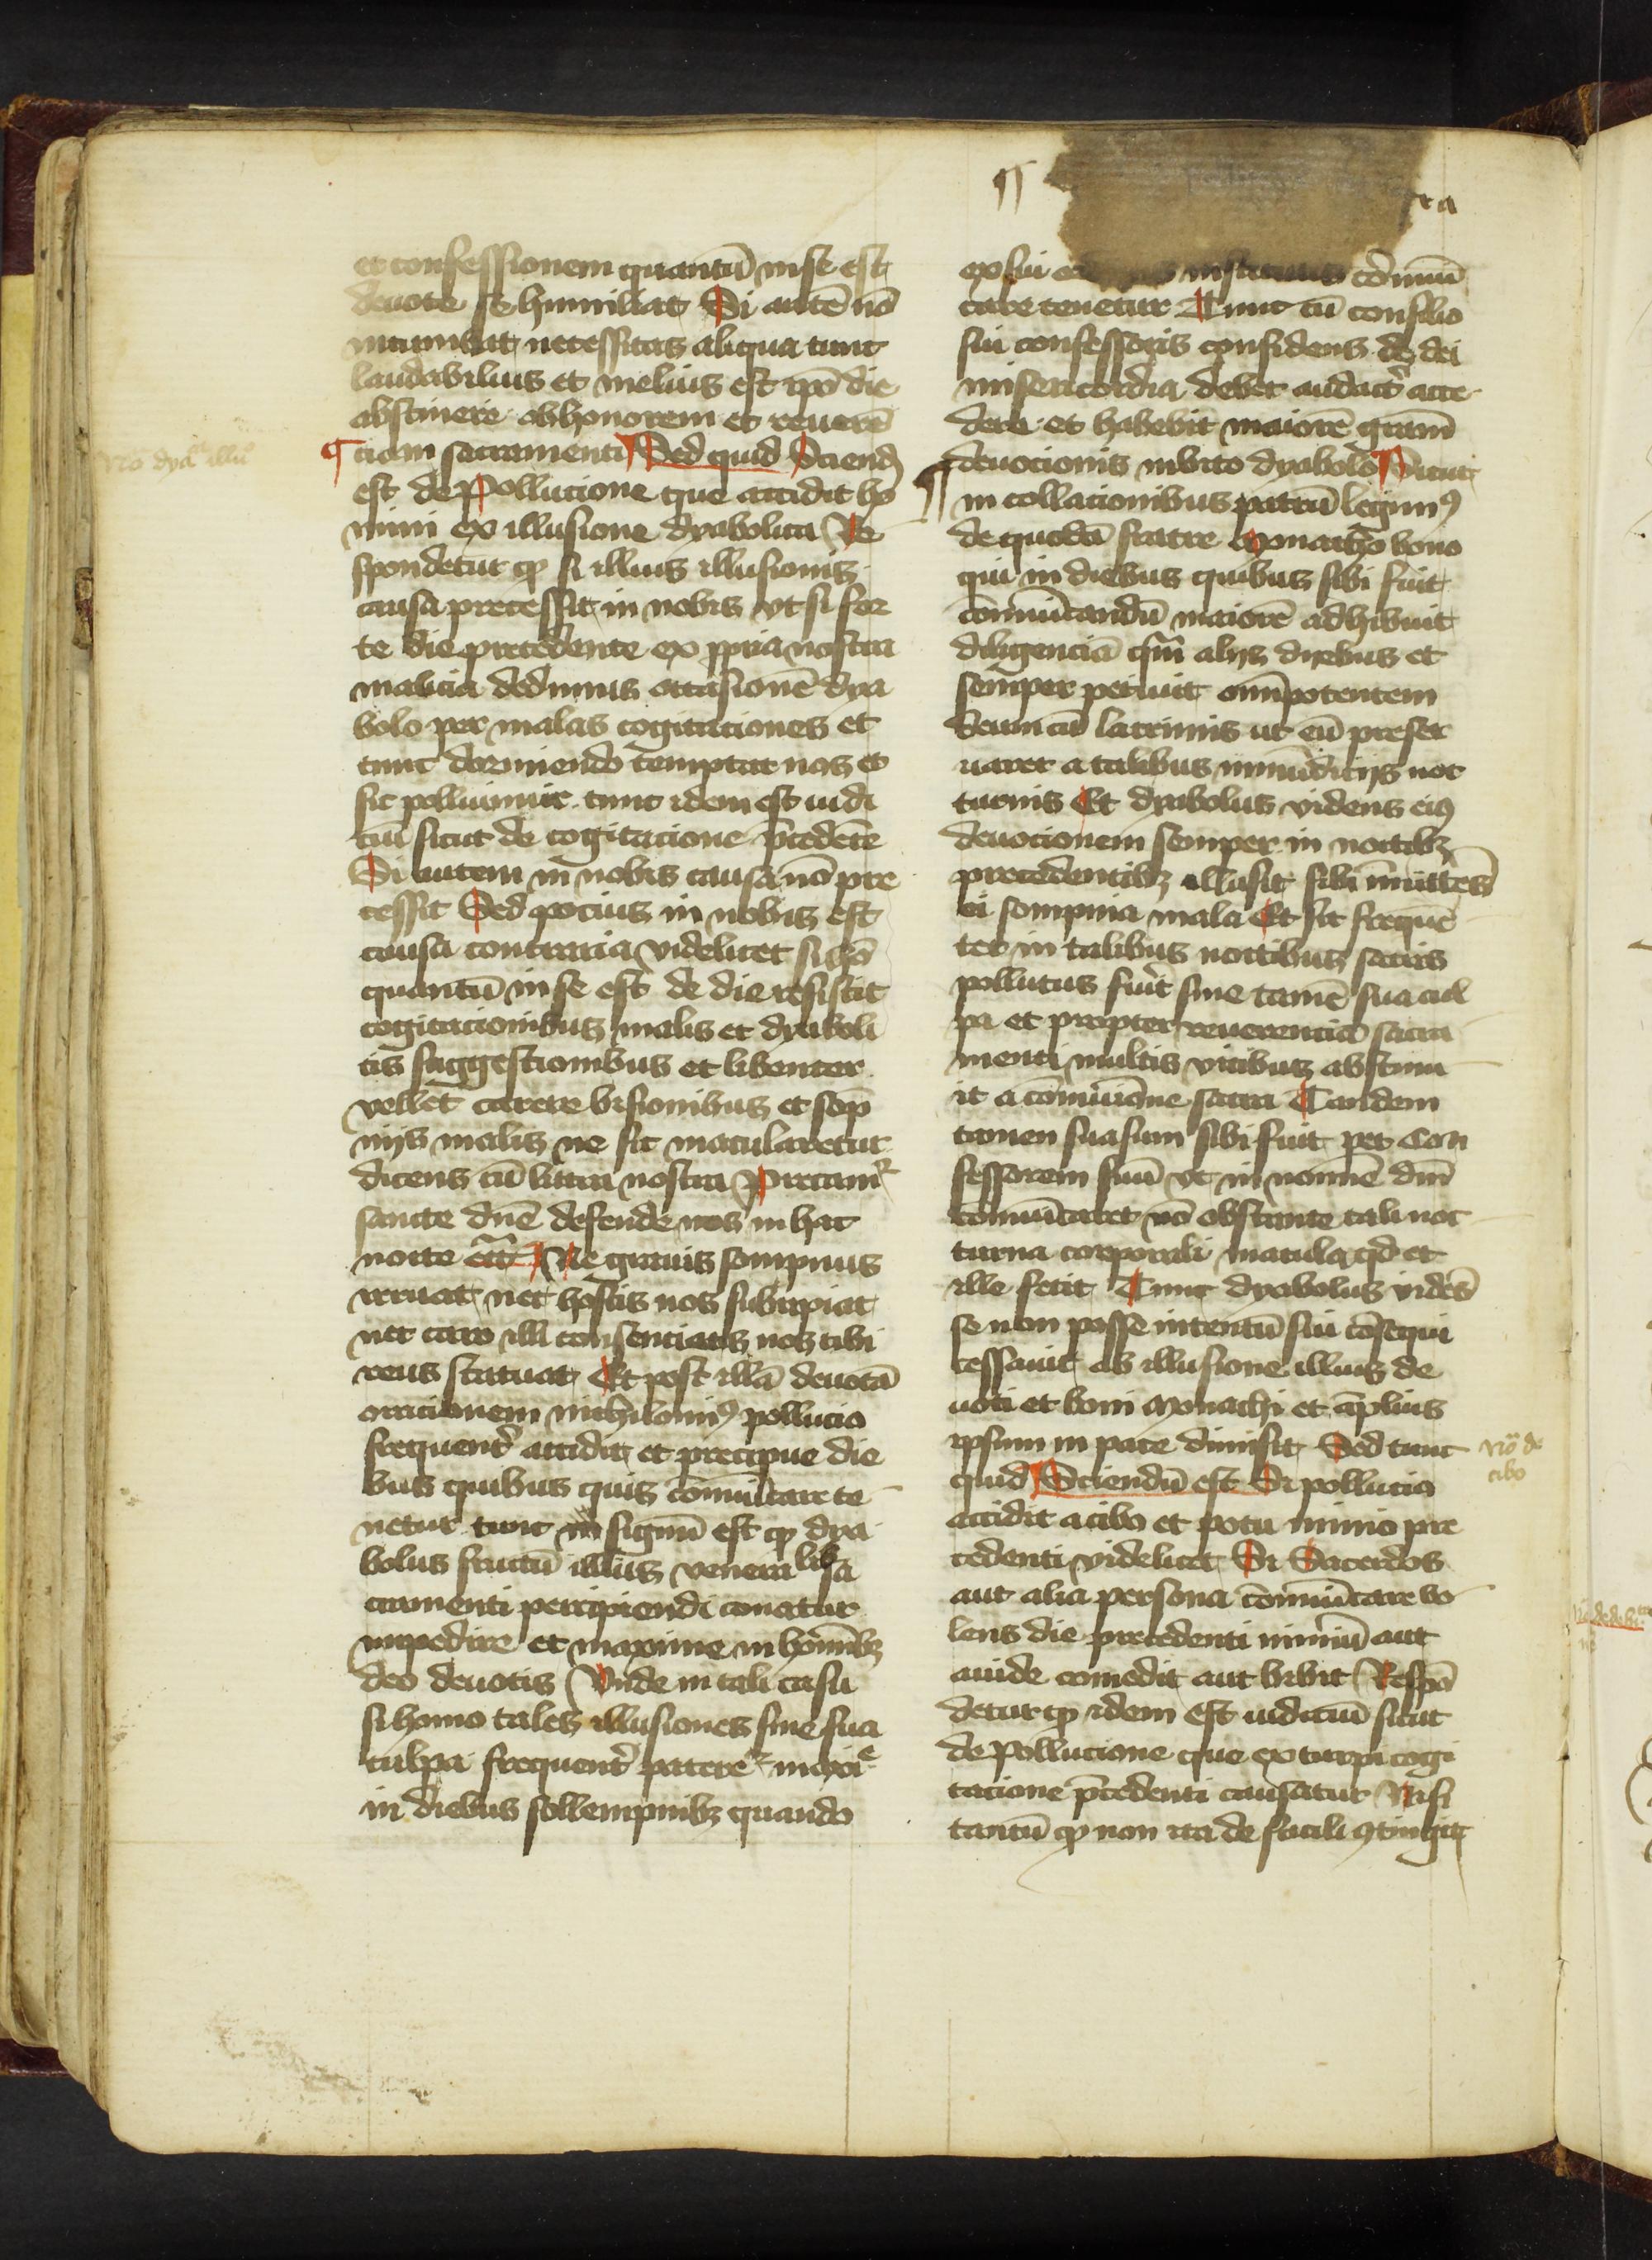 et confessionem quantū in se est
deuote se humiliat Si autē nō
incumbat necessitas aliqua tunc
laudabilius et melius est ipō die
abstinere ob honorem et reuerē
ciam sacramenti Sed quid Sciend
est de Pollucione que accidit ho
mini ex illusione dyabolica Re
spondetur ꝙ si illius illusionis
causa precessit in nobis vt si for
te die precedente ex ꝓpria nostra
malicia dedimus occasionē dya
bolo per malas cogitaciones et
tunc dormiendo temptat nos et
sic polluimur tunc idem est iudi
ciū sicut de cogitacione p̄cedēte
Si autem in nobis causa nō pre
cessit Sed pocius in nobis est
causa contraria videlicet si hō
quantū in se est de die resistit
cogitacionibus malis et dyaboli
cis suggestionibus et libenter
vellet carere visionibus et sōp
niis malis ne sic macularetur
dicens cū littera nostra Precamʳ
sancte dn̄e defende nos in hac
nocte etc̄ Ne grauis sompnus
irruat nec hostis nos subripiat
nec caro illi consenciens nos tibi
reus statuat Et post illā deuotā
oracionem nichilominꝰ pollucio
frequent̉ accidit et precipue die
bus quibus quis cōmūicare te
netur tunc signū est ꝙ dya
bolus fructū illius venerabilis sa
cramenti percipiendi conatur
impedire et maxime in hoīmbꝫ
deo deuotis Unde in tali casu
si homo tales illusiones sine sua
culpa frequent̉ pateretʳ maxīe
in diebus sollempnibꝫ quando
ex sui institutis cōmuni
care tenetur Tunc cū consilio
sui confessoris confidens de dei
misericordia debet audact̉ acce
dere et habebit maiorē gracīam
deuocionis inuito dyabolo Sicut
in collacionibus patrū legimꝰ
de quodā fratre Monacho bono
qui in diebus quibus sibi fuit
cōmūicandū maiorē adhibuit
diligenciā qm̄ aliis diebus et
semper petiuit omīpotentem
deum cū lacrimis ut eū preser
uaret a talibus inmūdiciis noc
turnis Et dyabolus videns eiꝰ
deuocionem semper in noctibꝫ
precedentibꝫ illusit sibi īmittēs
ei sompnia mala Et sic frequē
ter in talibus noctibus sacris
pollutus fuit sine tamē sua cul
pa et propter reuerenciā sacra
menti multis vicibus abstinu
it a cōmunione sacra Tandem
tamen suasum sibi fuit per Con
fessorem suū vt in nomine dn̄i
cōmūicaret nō obstante tali noc
turna corporali macula qd et
ille fecit Tunc dyabolus vidēs
se non posse intentū suū cōsequi
cessauit ab illusione illius de
uoti et boni Monachi et āplius
ipsum in pace dimisit Sed tunc
quid Sciendū est Si pollucio
accidit a cibo et potu nimio pre
cedenti videlicet Si Sacerdos
aut alia persona cōmūicare vo
lens die precedenti nimiū aut
auide comedit aut bibit Respō
detur ꝙ idem est iudiciū sicut
de Pollucione que ex turpi cogi
tacione p̄cedenti causatur Nisi
tantū ꝙ non ita de facili ꝯtingit
Nō de
cibo